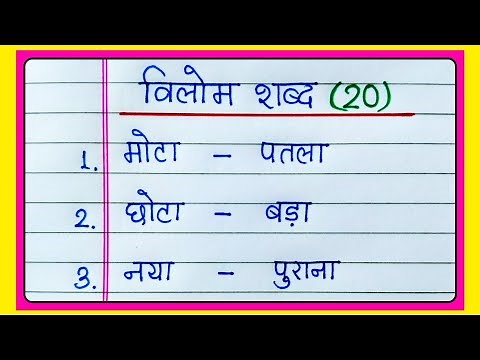 विलोम शब्द (20)
1. मोटा - पतला
2. छोटा - बड़ा
3. नया - पुराना